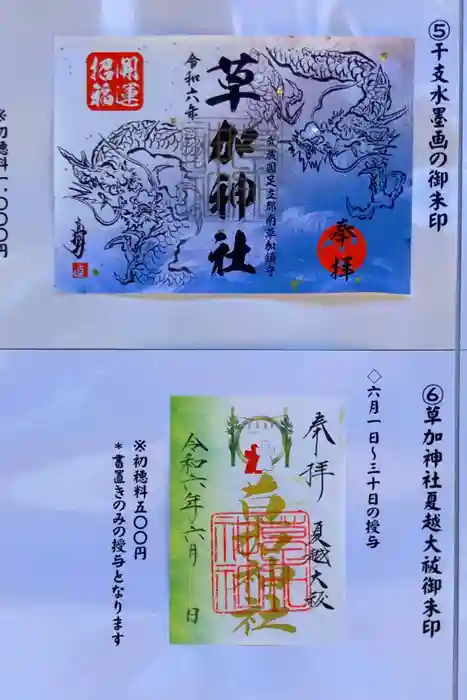 ⑤干支水墨画の御朱印
※初穂料一、〇〇〇円
開運
招福
令和六年
草加神社
武蔵国足立郡南草加鎮守
奉拝
⑥草加神社夏越大祓御朱印
◇六月一日〜三十日の授与
※初穂料五〇〇円
*書置きのみの授与となります
奉拝
夏越大祓
草加神社
令和六年六月 日